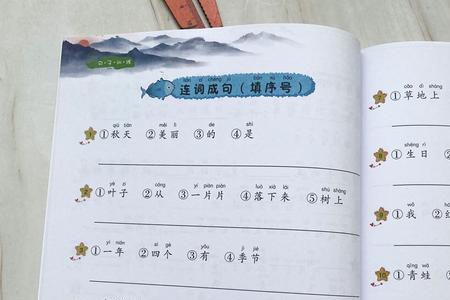 句·子·训·练
lián cí chéng jù tián xù hào
连词成句（填序号）
qiū tiān měi lì de shì
1 ①秋天 ②美丽 ③的 ④是
yè zi cóng yí piàn piàn luò xià lái shù shàng
2 ①叶子 ②从 ③一片片 ④落下来 ⑤树上
yì nián sì gè yǒu jì jié
3 ①一年 ②四个 ③有 ④季节
cǎo dì shàng
①草地上
shēng rì
①生日 ②
wǒ
9 ①我 ②
qīng wā
10 ①青蛙 ②